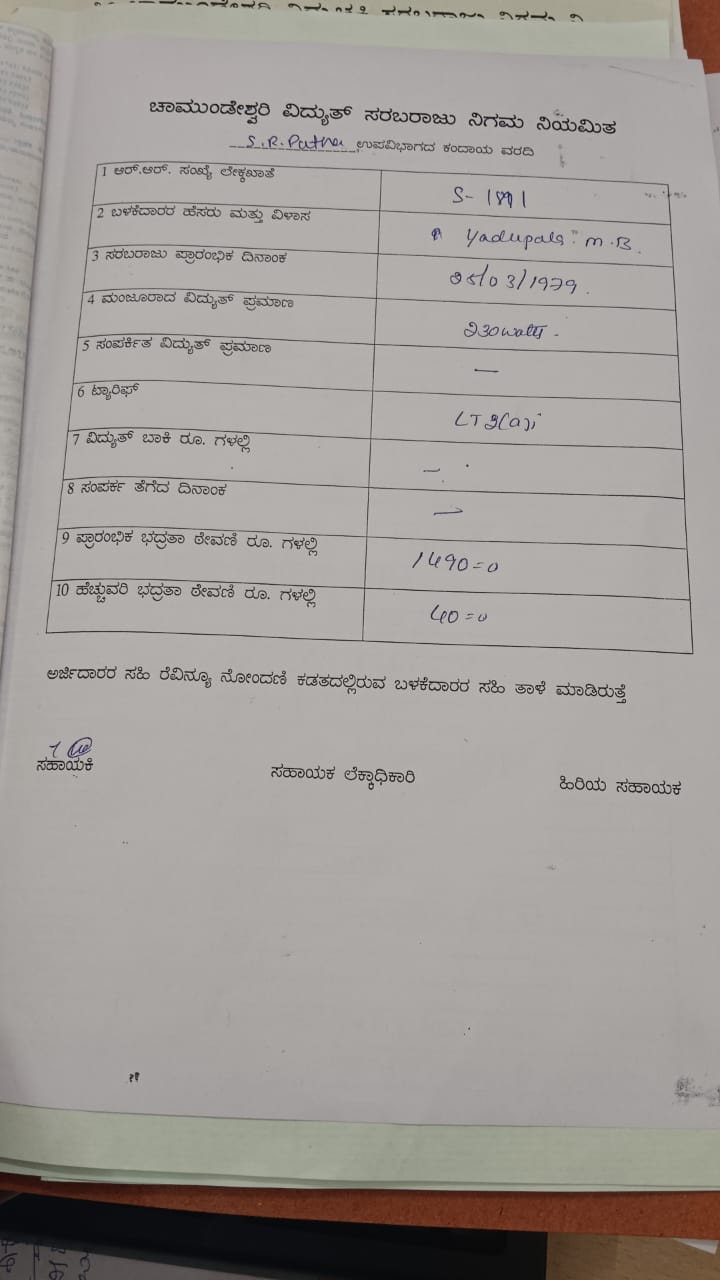 ಚಾಮುಂಡೇಶ್ವರಿ ವಿದ್ಯುತ್ ಸರಬರಾಜು ನಿಗಮ ನಿಯಮಿತ
S.R.Patna ಉಪವಿಭಾಗದ ಕಂದಾಯ ವರದಿ
1 ಆರ್.ಆರ್. ಸಂಖ್ಯೆ ಲೇಕ್ಕಖಾತೆ
S-
2 ಬಳಕೆದಾರರ ಹೆಸರು ಮತ್ತು ವಿಳಾಸ
Yadupala M.B.
3 ಸರಬರಾಜು ಪ್ರಾರಂಭಿಕ ದಿನಾಂಕ
/03/1979.
4 ಮಂಜೂರಾದ ವಿದ್ಯುತ್ ಪ್ರಮಾಣ
230watts -
5 ಸಂಪರ್ಕಿತ ವಿದ್ಯುತ್ ಪ್ರಮಾಣ
—
6 ಟ್ಯಾರಿಫ್
LT3(a)i
7 ವಿದ್ಯುತ್ ಬಾಕಿ ರೂ. ಗಳಲ್ಲಿ
—
8 ಸಂಪರ್ಕ ತೆಗೆದ ದಿನಾಂಕ
—
9 ಪ್ರಾರಂಭಿಕ ಭದ್ರತಾ ಠೇವಣಿ ರೂ. ಗಳಲ್ಲಿ
1490=0
10 ಹೆಚ್ಚುವರಿ ಭದ್ರತಾ ಠೇವಣಿ ರೂ. ಗಳಲ್ಲಿ
40=0
ಅರ್ಜಿದಾರರ ಸಹಿ ರೆವಿನ್ಯೂ ನೋಂದಣಿ ಕಡತದಲ್ಲಿರುವ ಬಳಕೆದಾರರ ಸಹಿ ತಾಳೆ ಮಾಡಿರುತ್ತೆ
ಸಹಾಯಕಿ ಸಹಾಯಕ ಲೆಕ್ಕಾಧಿಕಾರಿ ಹಿರಿಯ ಸಹಾಯಕ